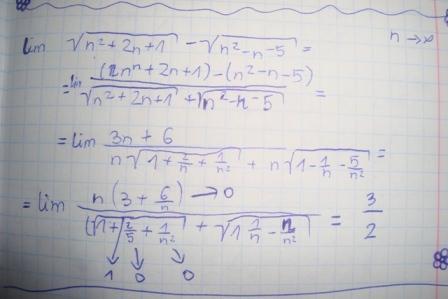 lim √(n²+2n+1) - √(n²-n-5) = n→∞
= lim ((2nⁿ+2n+1)-(n²-n-5))/(√(n²+2n+1) + √(n²-n-5)) =
= lim (3n+6)/(n√(1+2/n+1/n²) + n√(1-1/n-5/n²)) =
= lim (n(3+6/n)→0)/((√(1+2/5+1/n²) + √(1 1/n - n/n²)) = 3/2
1 0 0